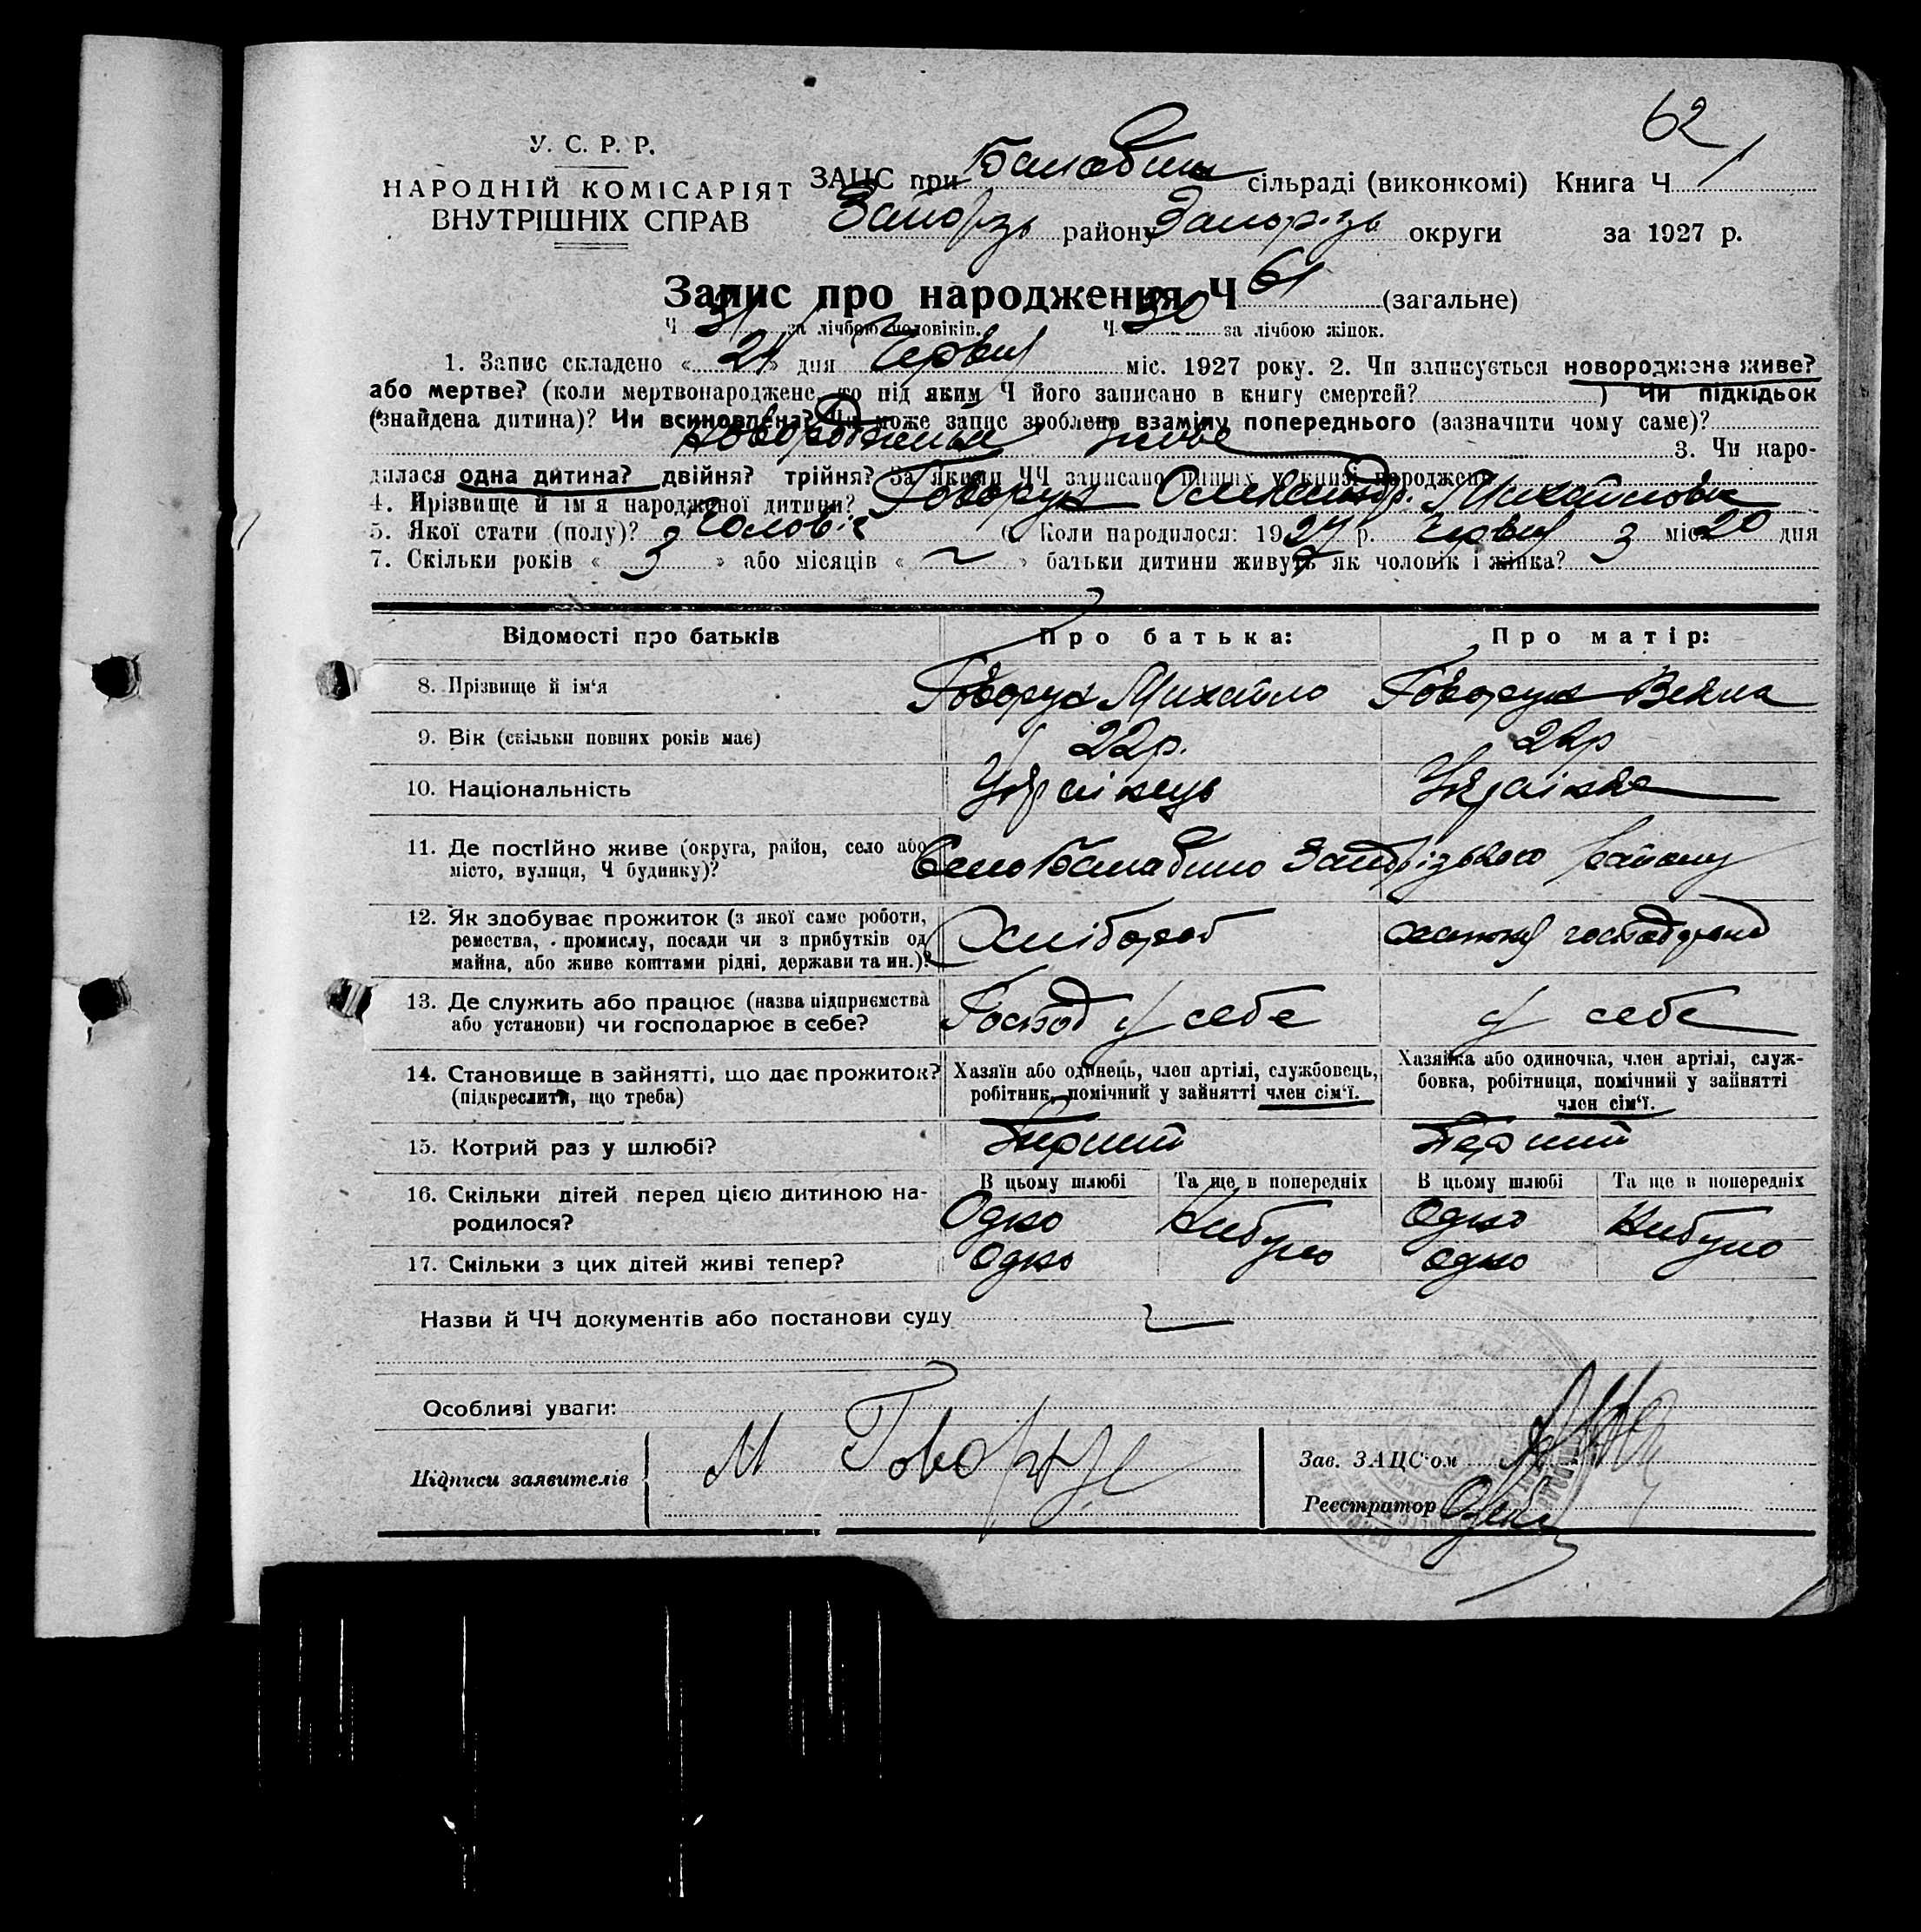 62
У. С. Р. Р.
НАРОДНІЙ КОМІСАРІЯТ
ВНУТРІШНІХ СПРАВ
ЗАЦС при Балабин сільраді (виконкомі) Книга Ч 1
Запорізь району Запорізь округи за 1927 р.
Запис про народження Ч 61 (загальне)
Ч 31 за лічбою чоловіків. Ч 30 за лічбою жінок.
1. Запис складено « 24 » дня Червня міс. 1927 року. 2. Чи записується новороджене живе?
або мертве? (коли мертвонароджене, то під яким Ч його записано в книгу смертей? ) Чи підкідьок
(знайдена дитина)? Чи всиновлена? Чи може запис зроблено взаміну попереднього (зазначити чому саме)?
живе 3. Чи наро-
дилася одна дитина? двійня? трійня? За якими ЧЧ записано инших у книзі народжень
4. Прізвище й ім'я народженої дитини? Говоруха Олександр Михайлович
5. Якої стати (полу)? Чоловіч 6 Коли народилося: 1927 р. Червня міс 20 дня
7. Скільки років « 3 » або місяців « » батьки дитини живуть як чоловік і жінка? 3
Відомості про батьків Про батька: Про матір:
8. Прізвище й ім'я Говоруха Михайло Говоруха
9. Вік (скільки повних років має) 22р. 22р
10. Національність Українець Українка
11. Де постійно живе (округа, район, село або
місто, вулиця, Ч будинку)? Село Балабино Запорізького району
12. Як здобуває прожиток (з якої саме роботи,
ремества, промислу, посади чи з прибутків од
майна, або живе коштами рідні, держави та ин.)? Хлібороб
13. Де служить або працює (назва підприємства
або установи) чи господарює в себе? Господ у себе у себе
14. Становище в зайнятті, що дає прожиток?
(підкреслити, що треба)
Хазяїн або одинець, член артілі, службовець,
робітник, помічний у зайнятті член сім'ї.
Хазяйка або одиночка, член артілі, служ-
бовка, робітниця, помічний у зайнятті
член сім'ї.
15. Котрий раз у шлюбі? Перший Перший
В цьому шлюбі Та ще в попередніх В цьому шлюбі Та ще в попередніх
16. Скільки дітей перед цією дитиною на-
родилося? Одно Небуло Одно Небуло
17. Скільки з цих дітей живі тепер? Одно Одно
Назви й ЧЧ документів або постанови суду
Особливі уваги:
Підписи заявителів М Говоруха
Зав. ЗАЦС'ом
Реєстратор